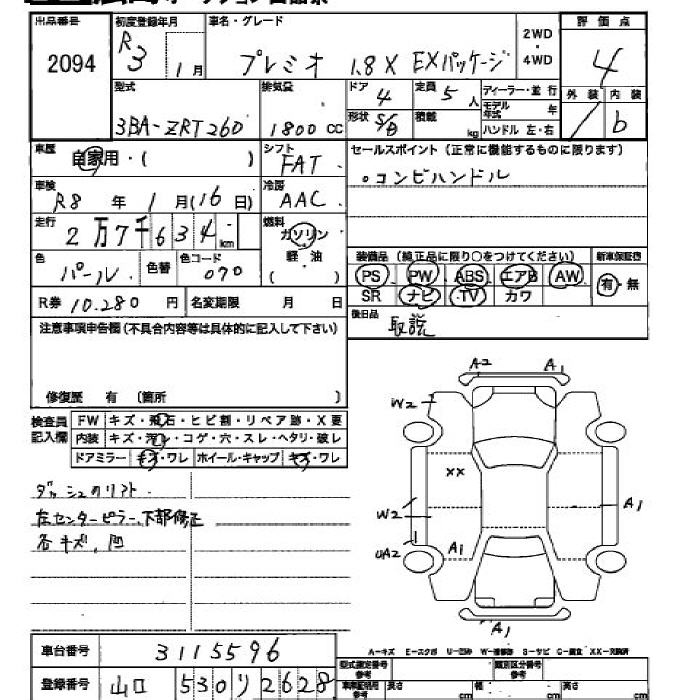 出品番号 初度登録年月 車名・グレード 2WD・4WD 評価点
2094 R3 1月 プレミオ 1.8X EXパッケージ 4
型式 排気量 ドア 4 定員 5人 ディーラー・並行 外装 内装
3BA-ZRT260 1800cc 形状 S/D 積載 kg モデル年式 年 b
ハンドル 左・右
車歴 自家用・( ) シフト FAT セールスポイント(正常に機能するものに限ります)
車検 R8年1月(16日) 冷房 AAC 。コンビハンドル
走行 2万7千634km 燃料 ガソリン 軽油 ( )
装備品(純正品に限り○をつけてください) 新車保証書
色 パール 色替 色コード 070 PS PW ABS エアB AW 有・無
R券 10.280円 名変期限 月 日 SR ナビ TV カワ
注意事項申告欄(不具合内容等は具体的に記入して下さい) 後日品 取説
修復歴 有 (箇所 )
検査員記入欄 FW キズ・飛石・ヒビ割・リペア跡・X要
内装 キズ・汚レ・コゲ・穴・スレ・ヘタリ・破レ
ドアミラー キズ・ワレ ホイール・キャップ キズ・ワレ
ダッシュのリフト
左センターピラー、下部修正
各キズ、凹
A2 A1
W2
XX
W2 A1
UA2 A1
A1
A-キズ E-エクボ U-凹み W-補修跡 S-サビ C-腐食 XX-交換済
車台番号 3115596
登録番号 山口 530 リ 2628
型式指定番号 参考 類別区分番号 参考
長さ cm 幅 cm 高さ cm